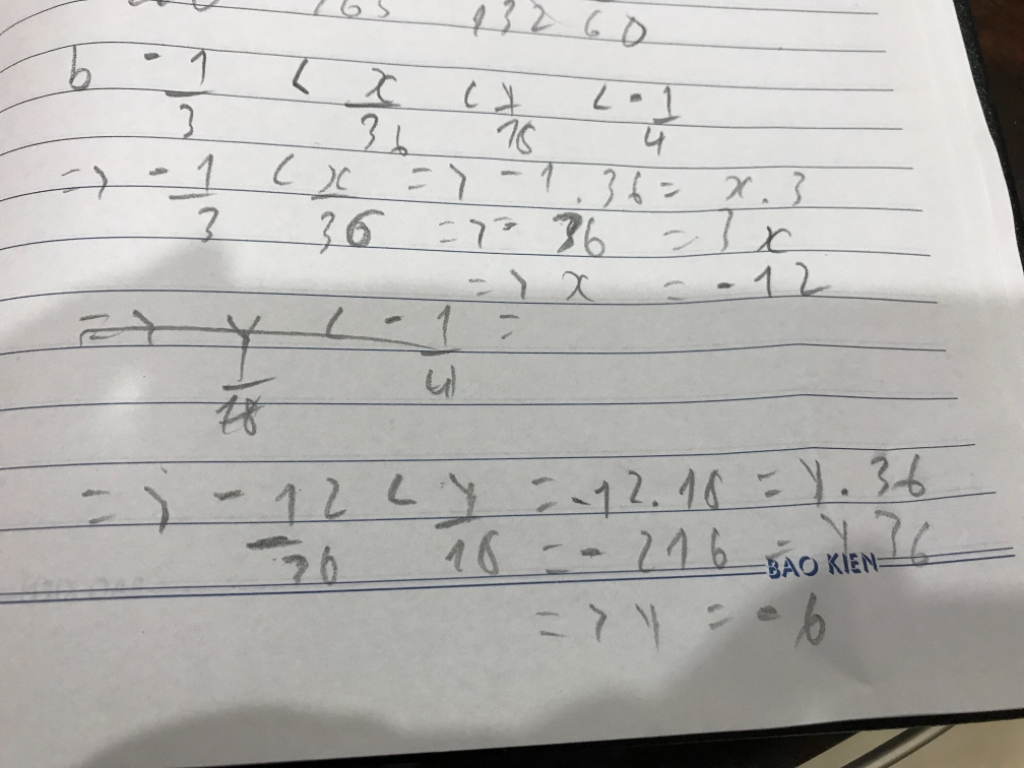 765 13260
b -1/3 < x/36 < y/18 < -1/4
=> -1/3 < x/36 => -1.36 = x.3
=> - 36 = 3x
=> x = -12
=> y/18 < -1/4 =
=> -12/36 < y/18 = -12.18 = y.36
= - 216 = y 36
BAO KIEN
=> y = -6